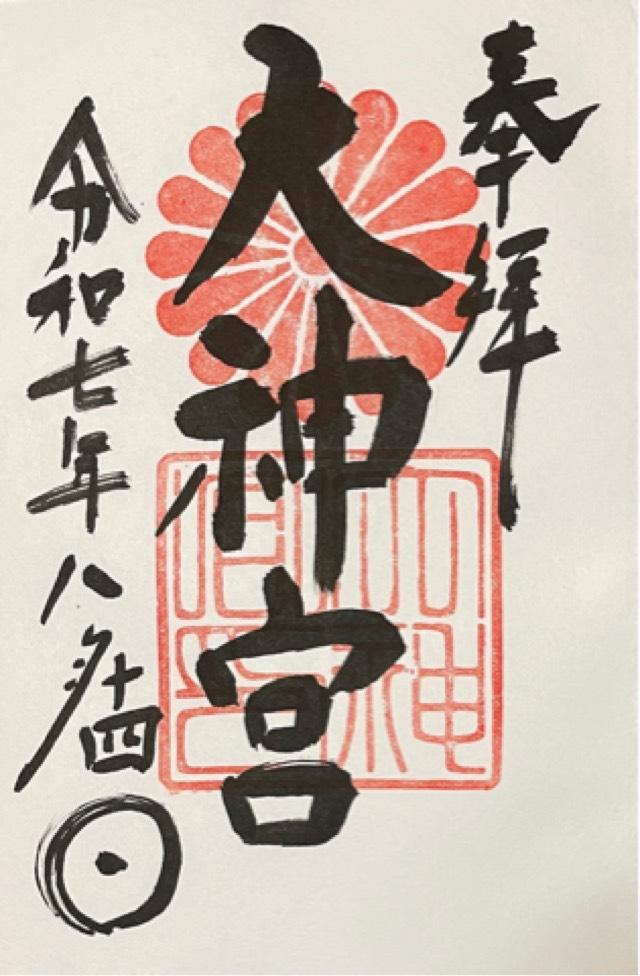 奉拝
大神宮
令和七年八月十四日